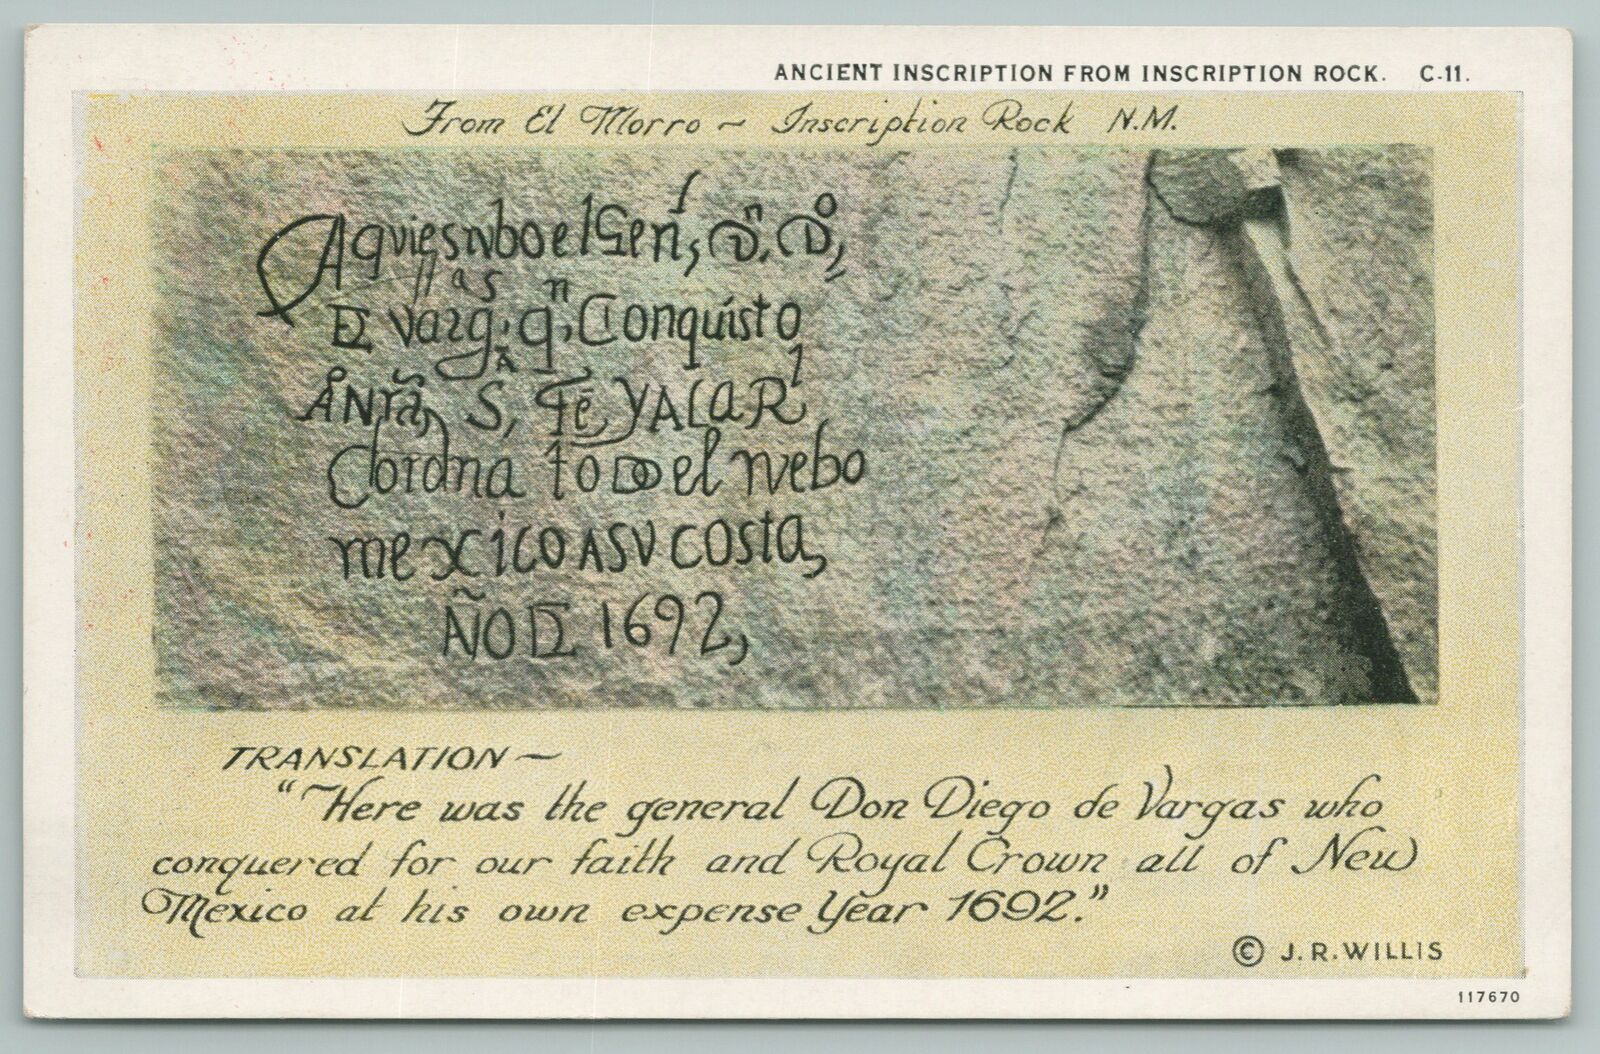 ANCIENT INSCRIPTION FROM INSCRIPTION ROCK. C-11.
From El Morro ~ Inscription Rock N.M.
Aquiestuboel Genl, Dn, Do,
DE Vargas, qn, Conquisto
ÂNrã, S, Fe YALaRl
Corona toDo el nvebo
mexico ASV costa,
AÑO DE 1692,
TRANSLATION ~
“Here was the general Don Diego de Vargas who
conquered for our faith and Royal Crown all of New
Mexico at his own expense Year 1692.”
© J.R.WILLIS
117670